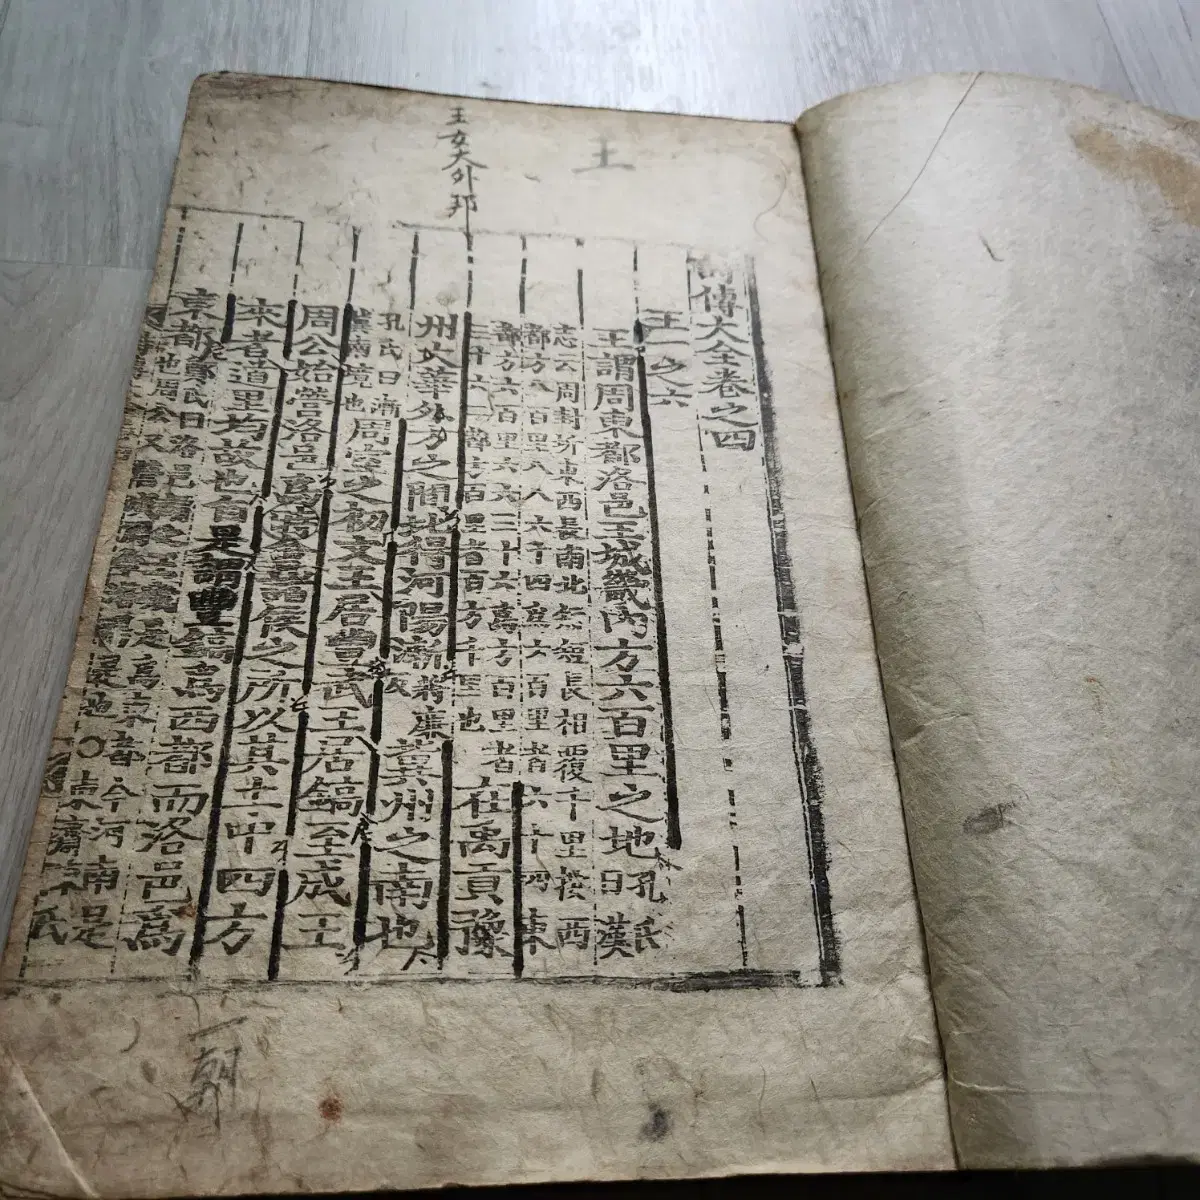 王
王女大外邦
詩傳大全卷之四
王一之六
王謂周東都洛邑王城畿內方六百里之地孔氏曰漢
志云周封圻東西長南北短長相覆千里按西
都方八百里八八六十四爲六百里者六十四東
都方六百里六六三十六爲方百里者
三十六二都方百里者百方千里也在禹貢豫
州大華外方之閒北得河陽漸冀州之南也
孔氏曰漸
冀南境也周室之初文王居豐武王居鎬至成王
周公始營洛邑爲時會諸侯之所以其土中四方
來者道里均故也自是謂豐鎬爲西都而洛邑爲
東都鄭氏曰洛邑
是爲東都今河南是
也周公又
是也○東齋陳氏
朝